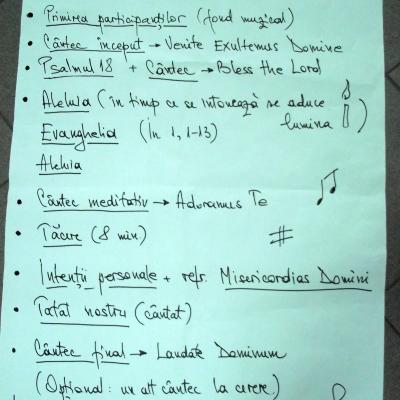 • Primirea participanților (fond muzical)
• Cântec început → Venite Exultemus Domine
• Psalmul 18 + Cântec → Bless the Lord
• Aleluia (în timp ce se intonează se aduce
lumina)
Evanghelia (In 1, 1-13)
Aleluia
• Cântec meditativ → Adoramus Te
• Tăcere (8 min)
• Intenții personale + refr. Misericordias Domini
• Tatăl nostru (cântat)
• Cântec final → Laudate Dominum
(Opțional: un alt cântec la cerere)